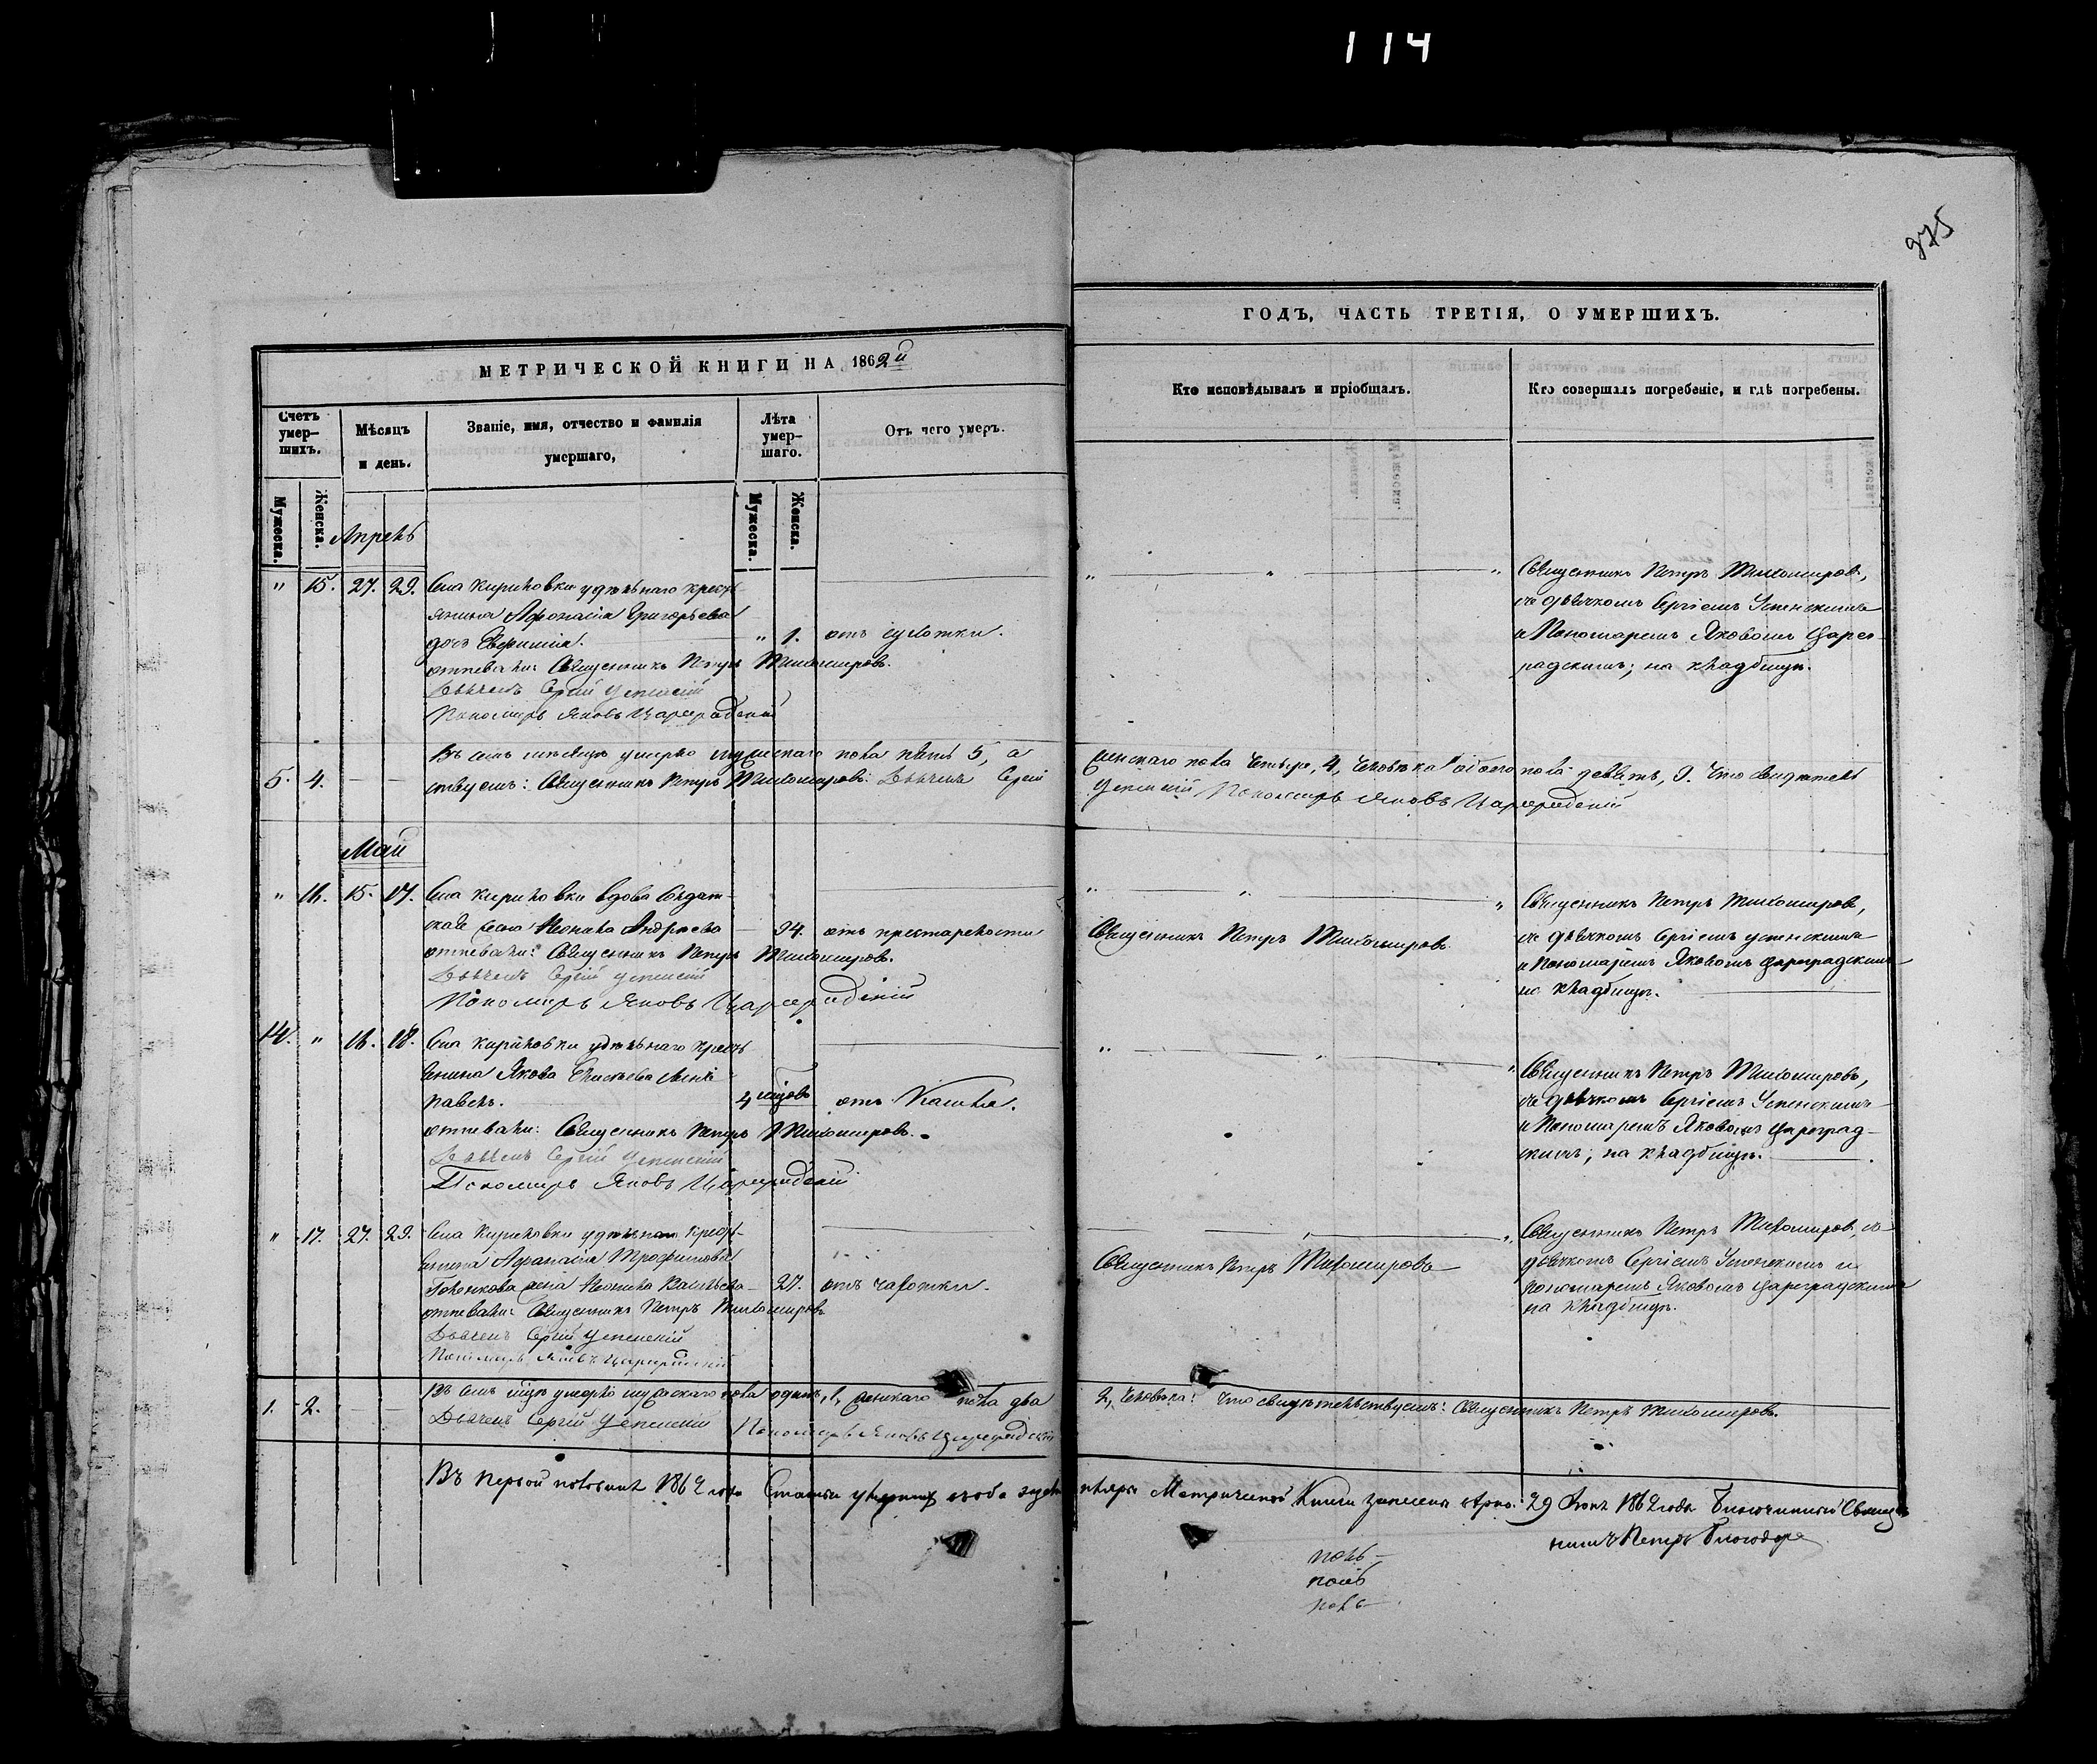 114
975
МЕТРИЧЕСКОЙ КНИГИ НА 1862й
ГОДЪ, ЧАСТЬ ТРЕТІЯ, О УМЕРШИХЪ.
Счетъ умер-шихъ.
Мужеска.
Женска.
Мѣсяцъ и день.
Званіе, имя, отчество и фамилія умершаго,
Лѣта умер-шаго.
Мужеска.
Женска.
Отъ чего умеръ.
Кто исповѣдывалъ и пріобщалъ.
Кто совершалъ погребеніе, и гдѣ погребены.
Апрель
" 15. 27. 29. Села Кириловки удѣльнаго кресть-
янина Афонасія Григорьева
дочь " 1. отъ
отпевали: Священникъ Петръ Тихомировъ.
Дьячекъ Сергій Успенскій
Пономарь Яковъ Цареградскій
Священникъ Петръ Тихомировъ,
съ дьячкомъ Сергіемъ Успенскимъ
и Пономаремъ Яковомъ Царег-
радскимъ; на кладбищѣ.
5. 4. Въ семъ мѣсяцѣ умерло мужескаго пола пять 5, а женскаго пола четыре, 4, человѣка обоего пола девять, 9. Что свидѣтель
ствуемъ: Священникъ Петръ Тихомировъ. Дьячекъ Сергій Успенскій Пономарь Яковъ Цареградскій
Май
" 16. 15. 17. Села Кириловки вдова Солдат-
ская жена Андреева 94. отъ престарелости
отпевали: Священникъ Петръ Тихомировъ.
Дьячекъ Сергій Успенскій
Пономарь Яковъ Цареградскій
Священникъ Петръ Тихомировъ
Священникъ Петръ Тихомировъ,
съ дьячкомъ Сергіемъ Успенскимъ
и Пономаремъ Яковомъ Цареградскимъ
на кладбищѣ.
14. " 16. 18. Села Кириловки удѣльнаго кресть
янина Якова сынъ
Павелъ. 4 мцовъ отъ Кашля.
отпевали: Священникъ Петръ Тихомировъ.
Дьячекъ Сергій Успенскій
Пономарь Яковъ Цареградскій
Священникъ Петръ Тихомировъ,
съ дьячкомъ Сергіемъ Успенскимъ
и Пономаремъ Яковомъ Цареград-
скимъ; на кладбищѣ.
" 17. 27. 29. Села Кириловки удѣльнаго кресть-
янина Афанасія Трофимова
жена Васильева 27. отъ чахотки.
отпевали: Священникъ Петръ Тихомировъ
Дьячекъ Сергій Успенскій
Пономарь Яковъ Цареградскій
Священникъ Петръ Тихомировъ
Священникъ Петръ Тихомировъ, съ
дьячкомъ Сергіемъ Успенскимъ и
пономаремъ Яковомъ Цареградскимъ
на кладбищѣ.
1. 2. Въ семъ мцѣ умерло мужескаго пола одинъ, 1, женскаго пола два 2, человѣка: Что свидѣтельствуемъ: Священникъ Петръ Тихомировъ.
Дьячекъ Сергій Успенскій Пономарь Яковъ Цареградскій
Въ первой половинѣ 1862 года Статьи умершихъ Метрической Книги записаны вѣрно: 29 1862 года Благочинный Священ
никъ Петръ